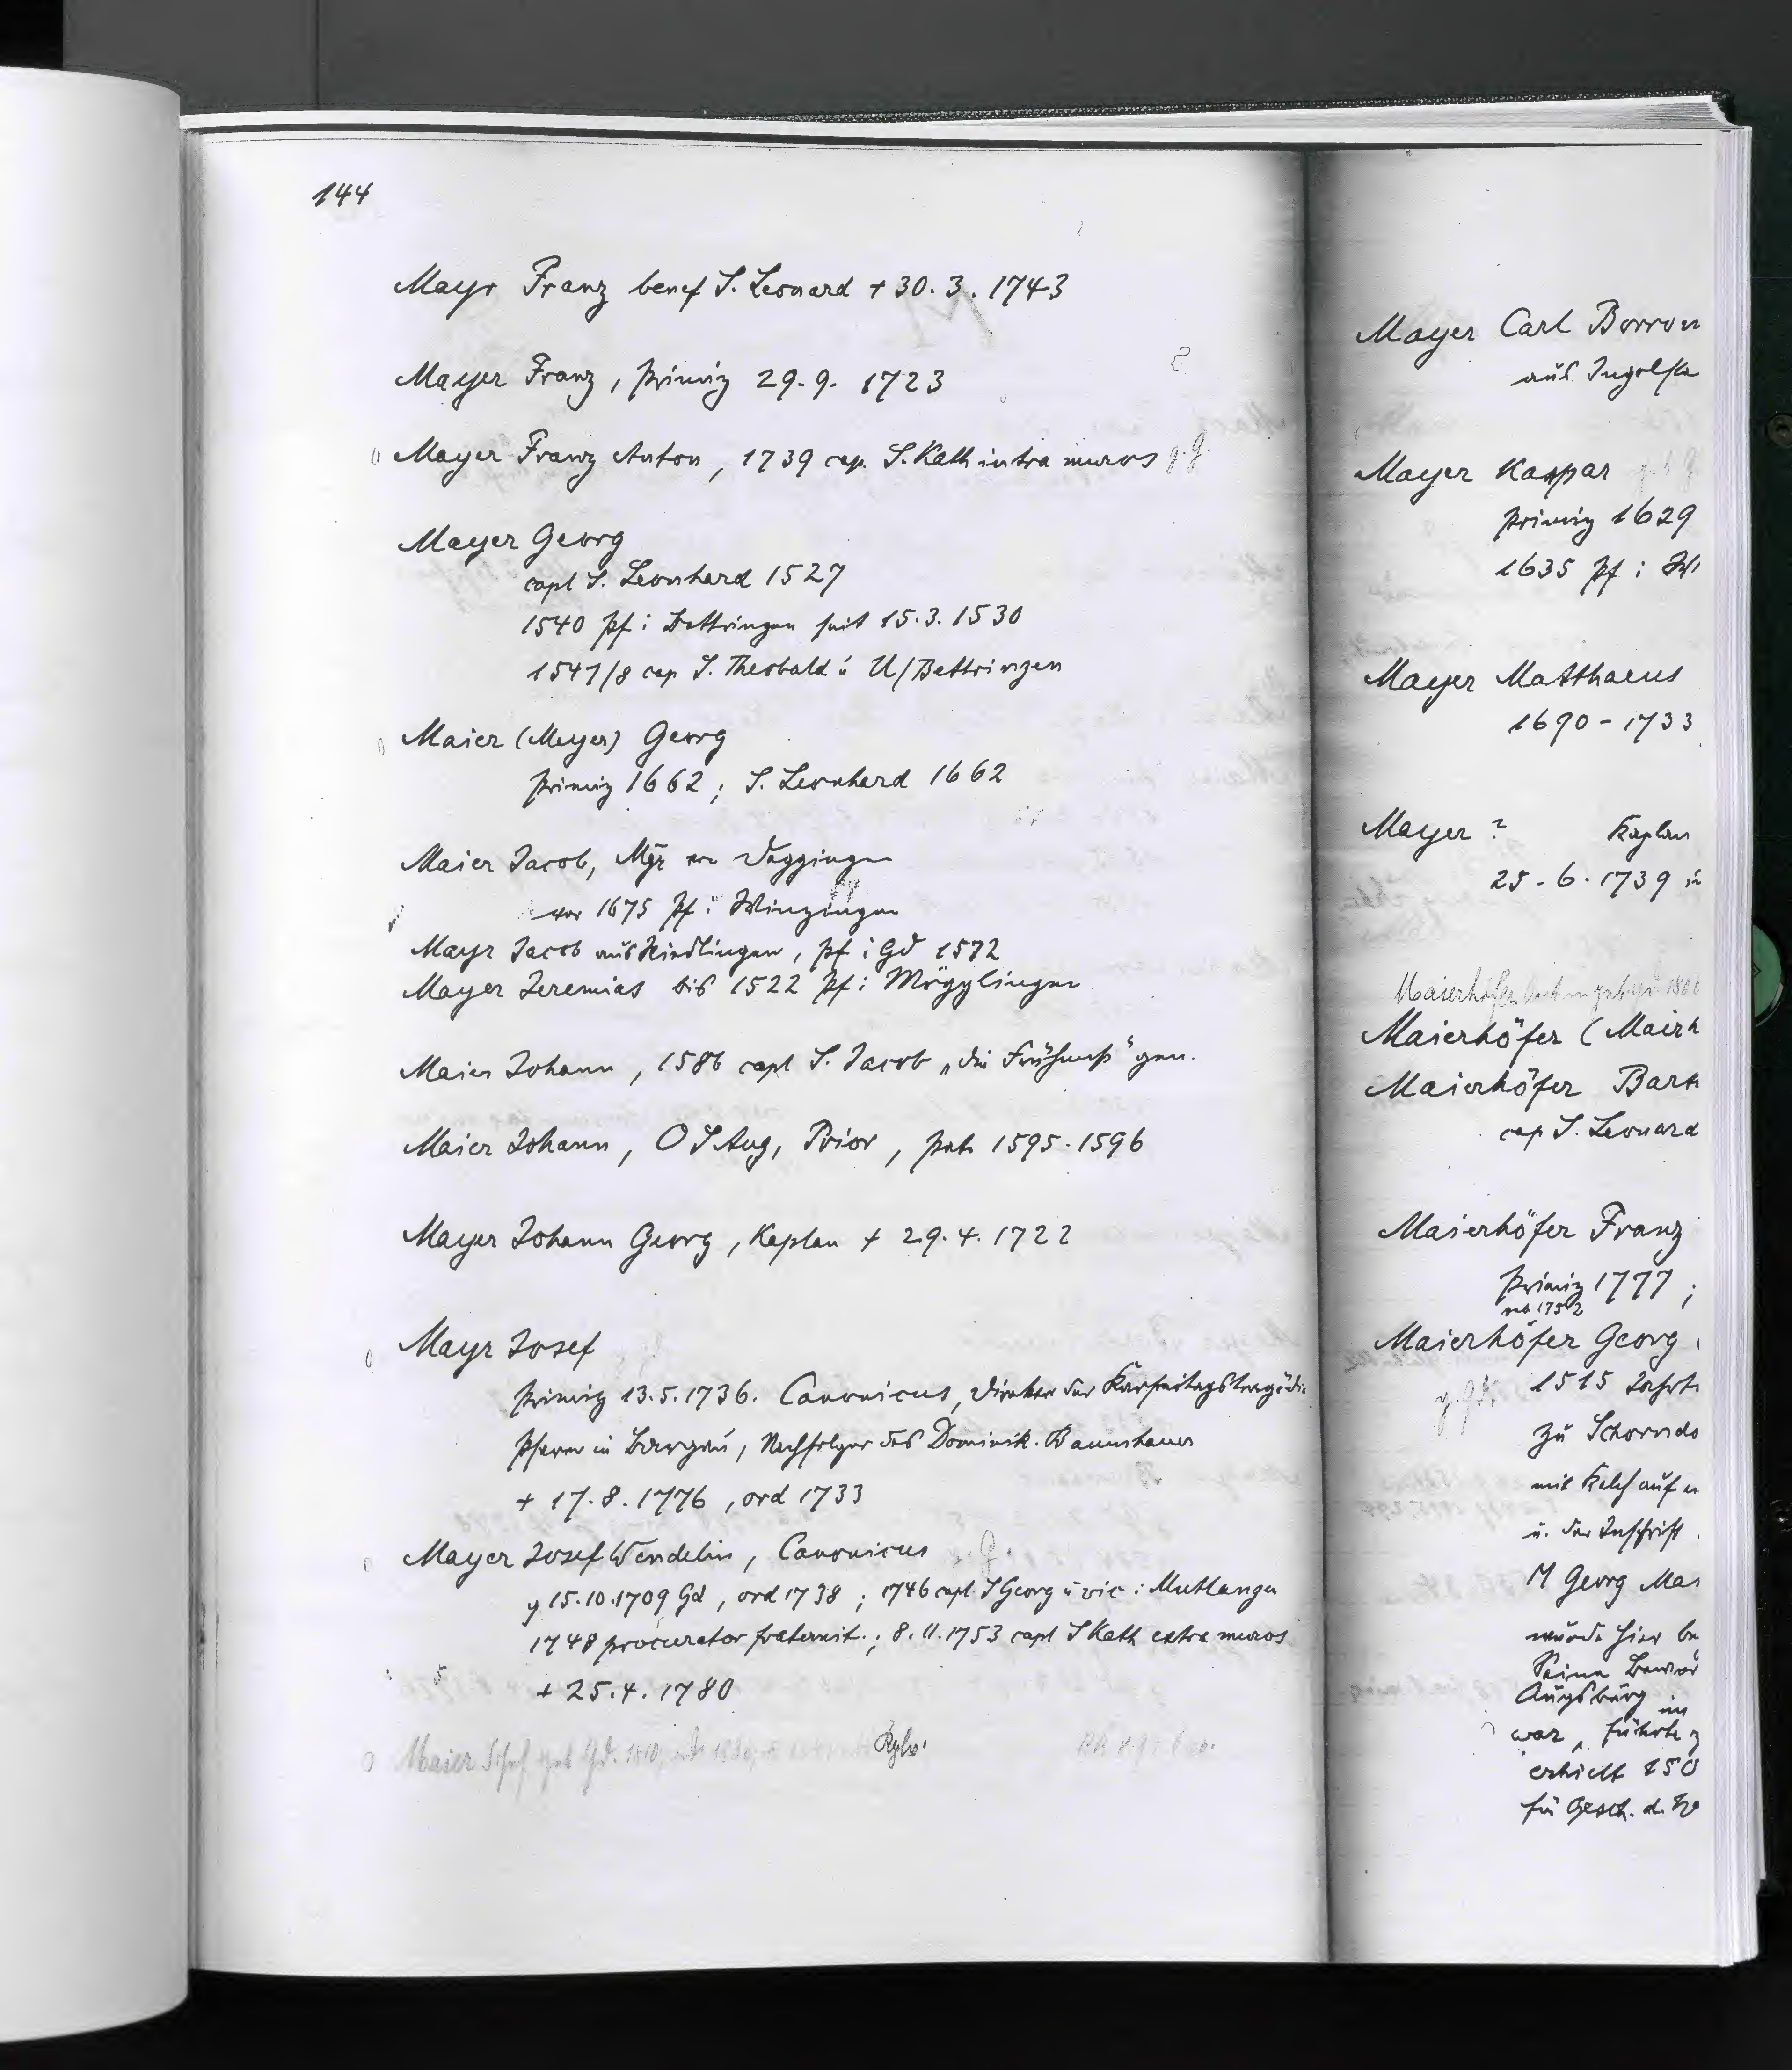 144
Mayr Franz benef S. Leonard + 30. 3. 1743
Mayer Franz, Primiz 29. 9. 1723
Mayer Franz Anton, 1739 cap. S. Kath intra muros g. G.
Mayer Georg
capl S. Leonhard 1527
1540 Pf i Bettringen seit 15. 3. 1530
1547/8 cap S. Theobald i U/Bettringen
Maier (Meyer) Georg
Primiz 1662; S. Leonhard 1662
Maier Jacob, Mgr
vor 1675 Pf i Winzingen
Mayr Jacob aus Riedlingen, Pf i Gd 1572
Mayer Jeremias bis 1522 Pf i Mögglingen
Maier Johann, 1586 capl S. Jacob „die Frühmeß" gen.
Maier Johann, O S Aug, Prior, 1595-1596
Mayer Johann Georg, Kaplan + 29. 4. 1722
Mayr Josef
Primiz 13. 5. 1736. Canonicus, Direktor der Karfreitagstragödie
Pfarrer in Bargau, Nachfolger des Dominik. Baumhauer
+ 17. 8. 1776, ord 1733
Mayer Josef Wendelin, Canonicus g. G.
15. 10. 1709 Gd, ord 1738; 1746 capl S Georg u vic i Mutlangen
1748 procurator fraternit.; 8. 11. 1753 capl S Kath extra muros
+ 25. 4. 1780
Maier geb Gd.
Mayer Carl Borrom
aus Ingolsta
Mayer Kaspar
Primiz 1629
1635 Pf i
Mayer Matthaeus
1690 - 1733
Mayer ? Kaplan
25. 6. 1739
Maierhöfer
Maierhöfer (Mairh
Maierhöfer Bart
cap S. Leonard
Maierhöfer Franz
Primiz 1777;
nat 1752
Maierhöfer Georg
1515
zu Schorndo
mit Kelch auf
u. der Inschrift
M Georg Mai
wurde hier be
Seine
Augsburg im
war, führte
erhielt 150
für Gesch. d.